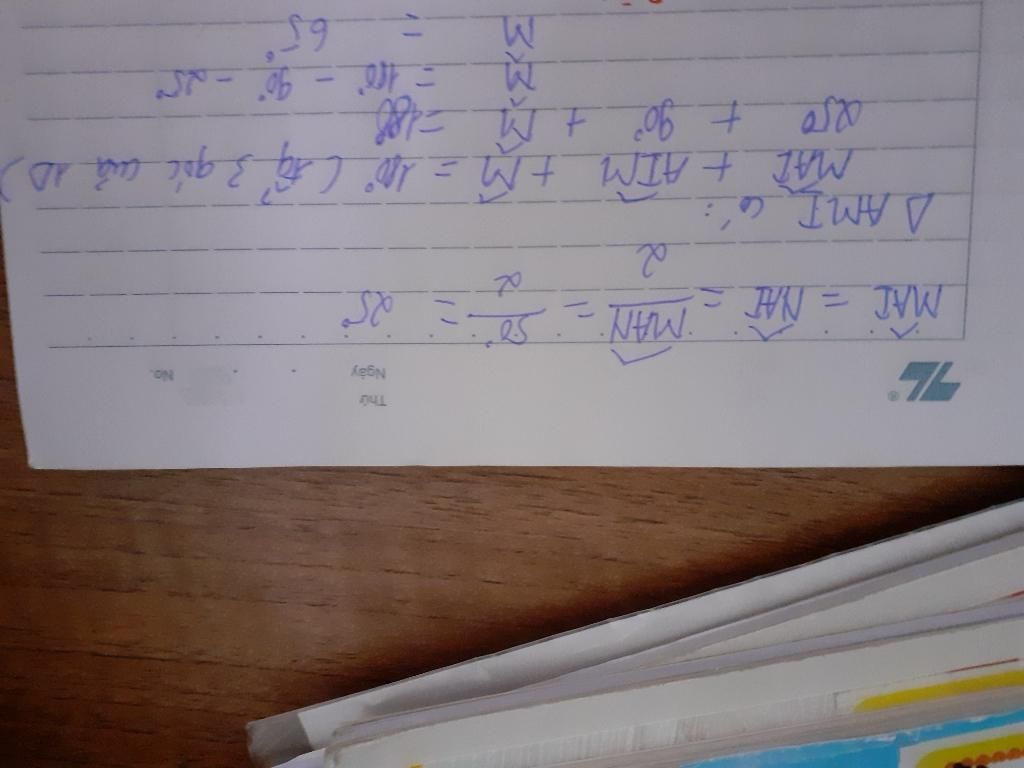 TL®
Thứ
Ngày No.
MAI^ = NAI^ = MAN^/2 = 50°/2 = 25°
Δ AMI có:
MAI^ + AIM^ + M^ = 180° (tg 3 góc của 1Δ)
250 + 90° + M^ = 180
M^ = 180° - 90° - 25°
M^ = 65°